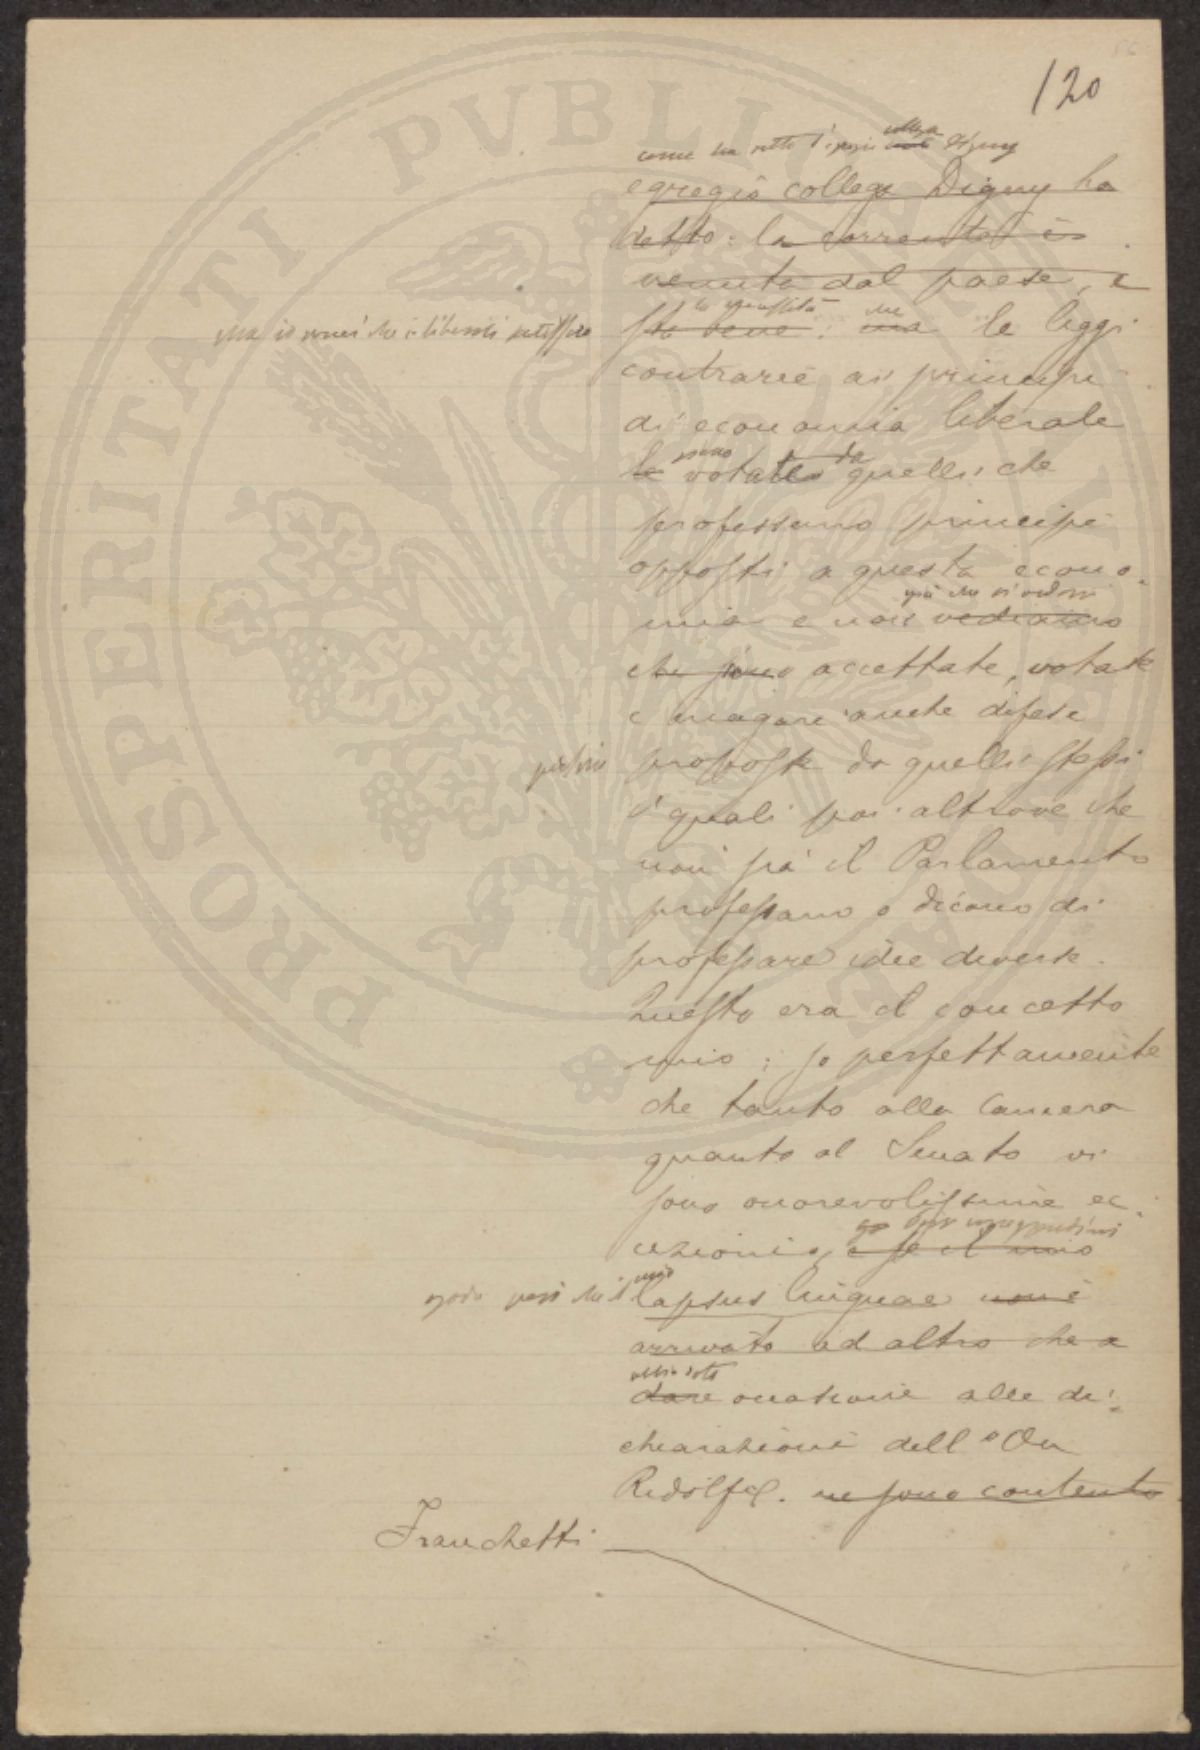 120
come ha detto l'egregio collega Digny
egregio collega Digny ha
detto: la corrente è
venuta dal paese, e
sta bene: ma le leggi
contrarie ai principi
di economia liberale
le sono votate da quelli che
professano principi
opposti a questa econo-
mia e non vediamo
che sono accettate, votate
e magari anche difese
proposte da quelli stessi
i quali poi altrove che
non sia il Parlamento
professano o dicono di
professare idee diverse.
Questo era il concetto
mio; so perfettamente
che tanto alla Camera
quanto al Senato vi
sono onorevolissime ec-
cezioni, e se il mio
lapsus linguae non è
arrivato ad altro che a
dare occasione alle di-
chiarazioni dell'On
Ridolfi. ne sono contento
Franchetti
PROSPERITATI PVBLICAE